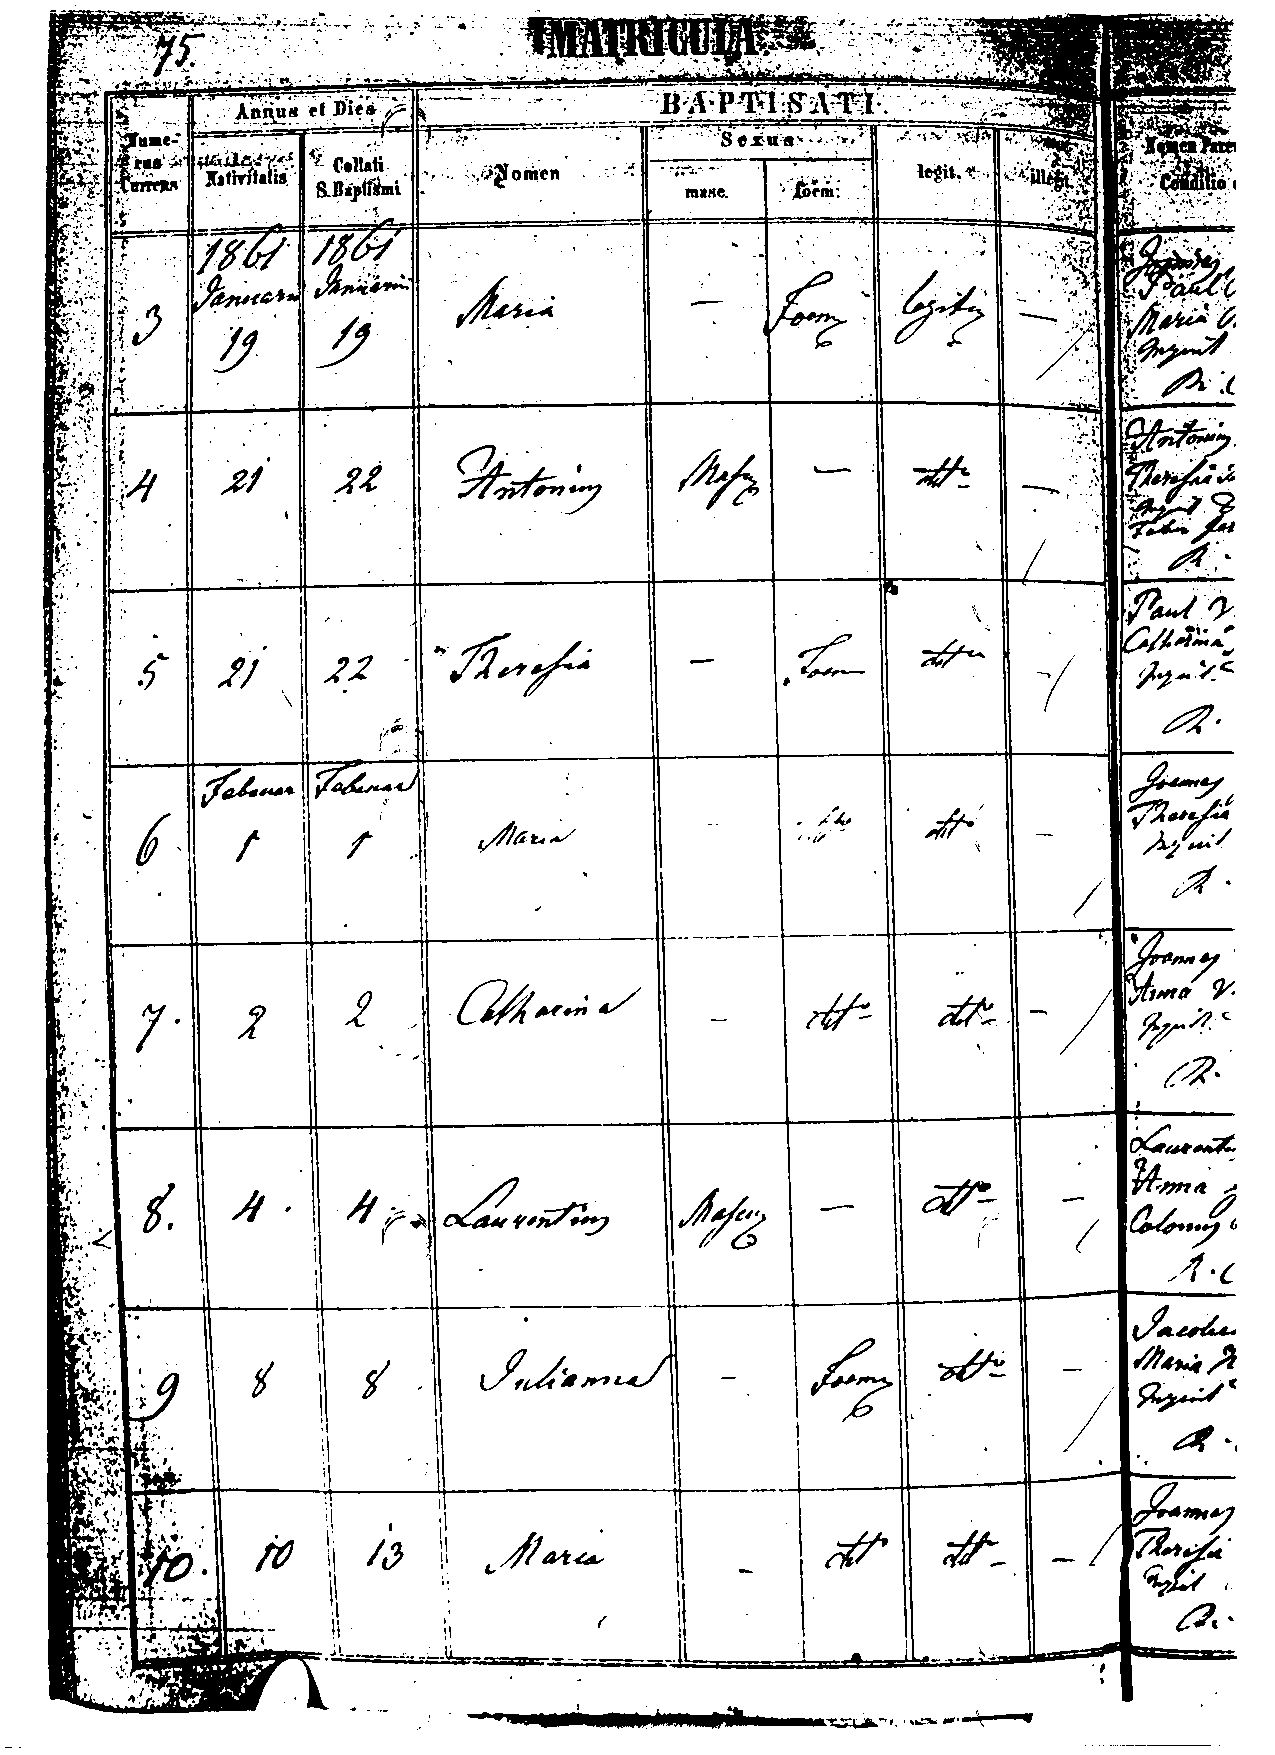 75.
IMATRICULA
Annus et Dies
BAPTISATI.
Nume-
rus
Currens
Nativitatis
Collati
S. Baptismi
Nomen
Sexus
masc.
foem.
legit.
illegi.
Nomen Paren
Conditio
3 1861 Januarii 19 1861 Januarii 19 Maria — Foem legitim —
Paul
Maria
Inquil
R. C
4 21 22 Antonius Mascu — ditto —
Antonius
Theresia
Inquil
Faber
R.
5 21 22 Theresia — Foem ditto —
Paul
Catharina
Inquil.
R.
6 Februar 1 Februar 1 Maria — ditto —
Joannes
Theresia
Inquil
R.
7. 2 2 Catharina — ditto ditto —
Joannes
Anna
Inquil.
R.
8. 4 4 Laurentius Mascu — ditto —
Laurentiu
Anna
Colonus
R. C
9 8 8 Julianna — Foem ditto —
Jacobus
Maria
Inquil
R.
10. 10 13 Maria — ditto ditto —
Joannes
Theresia
Inquil
R.